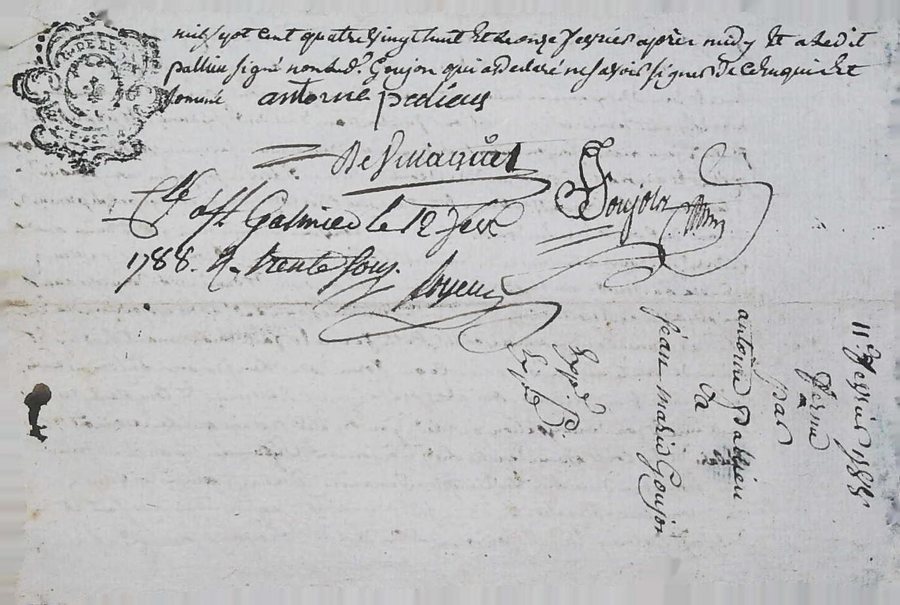 mil sept cent quatre vingt huit et le onze fevrier après midy Et a Ledit
pallieu signé non led. Goujon qui a declaré ne savoir signer De ce Enquis Et
somme
antoine palieu
De Villaquet
Goujon
Clle a St Galmier le 12 fevr
1788. R. trente sous.
11e fevrier 1788
ferme
par
antoine pallieu
a
jean marie Goujon
Expé